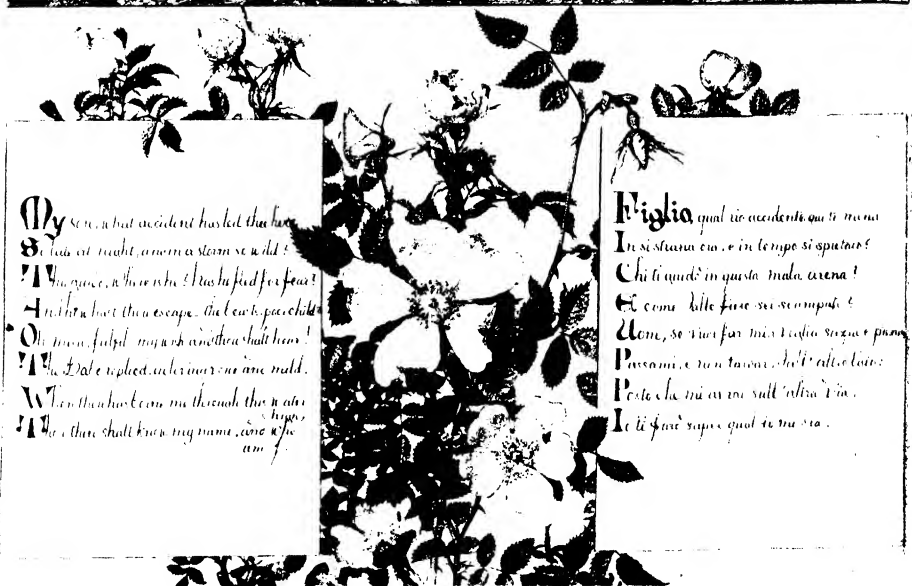 My son, what accident has led thee here,
So late at night, and in a storm so wild?
Thy guide, where is he? Has he fled for fear?
And thou hast thou escaped the beasts, poor child?
Oh man, fulfil my wish and thou shalt hear!
The Babe replied, with mild.
When thou hast me through the water
high,
Then thou shalt know my name, and who
am I.
Figlio, qual rio accidente qui ti mena
In si strana ora, e in tempo si spietato?
Chi ti guidò in questa mala arena?
E come dalle fiere sei scampato?
Uom, se vuoi far mia voglia sazia e piena
Passami, e non tardar, dall'altro lato:
Posto che mi sull'altra via,
Io ti farò saper qual io mi sia.